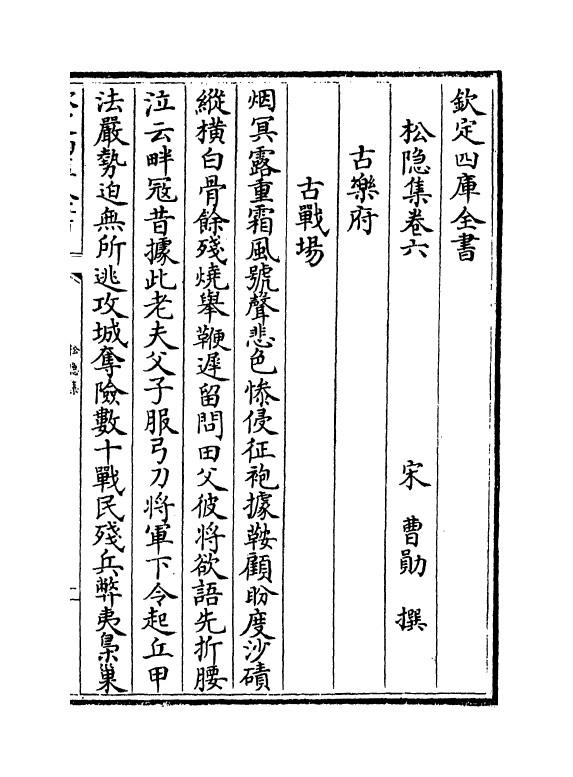 欽定四庫全書
松隱集卷六
宋 曹勛 撰
古樂府
古戰場
烟冥露重霜風號聲悲色慘侵征袍據鞍顧盼度沙磧
縱橫白骨餘殘燒舉鞭遲留問田父彼將欲語先折腰
泣云畔冦昔據此老夫父子服弓刀將軍下令起丘甲
法嚴勢迫無所逃攻城奪險數十戰民殘兵弊夷梟巢
松隱集